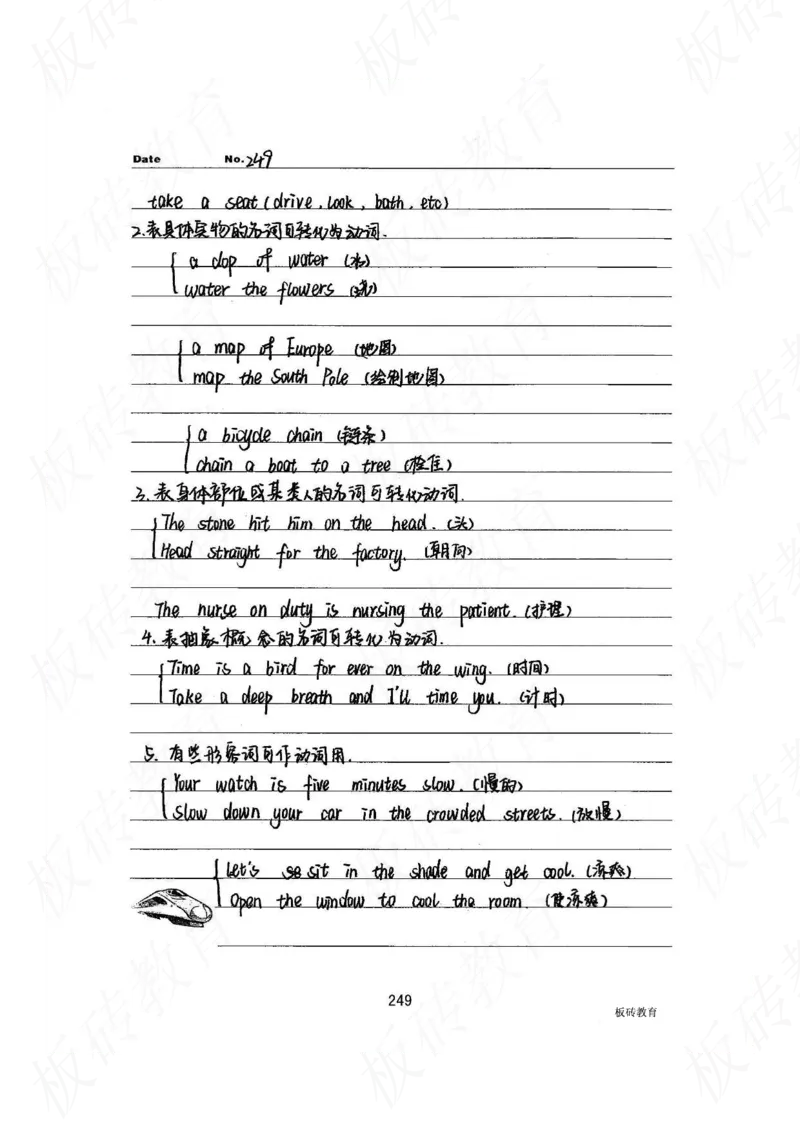 Date No. 249
take a seat (drive, look, bath, etc)
2.表具体实物的名词可转化为动词.
a dop of water (水)
water the flowers (浇)
a map of Europe (地图)
map the South Pole (绘制地图)
a bicycle chain (链条)
chain a boat to a tree (拴住)
3.表身体部位或某类人的名词可转化动词.
The stone hit him on the head. (头)
Head straight for the factory. (朝向)
The nurse on duty is nursing the patient. (护理)
4.表抽象概念的名词可转化为动词.
Time is a bird for ever on the wing. (时间)
Take a deep breath and I'll time you. (计时)
5.有些形容词可作动词用.
Your watch is five minutes slow. (慢的)
Slow down your car in the crowded streets. (放慢)
Let's sit in the shade and get cool. (凉爽)
Open the window to cool the room. (使凉爽)
249
板砖教育